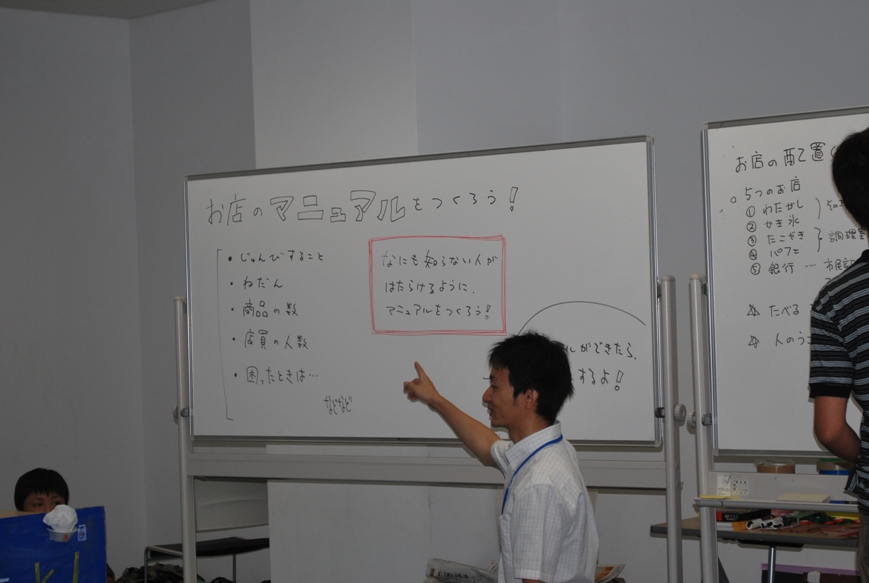 お店のマニュアルをつくろう!
・じゅんびすること
・ねだん
・商品の数
・店員の人数
・困ったときは…
などなど
なにも知らない人が
はたらけるように、
マニュアルをつくろう!
ができたら、
するよ!
お店の配置
5つのお店
① わたがし
② かき氷
③ たこやき
④ パフェ
調理室
⑤ 銀行 …
☆ たべる
☆ 人のうご